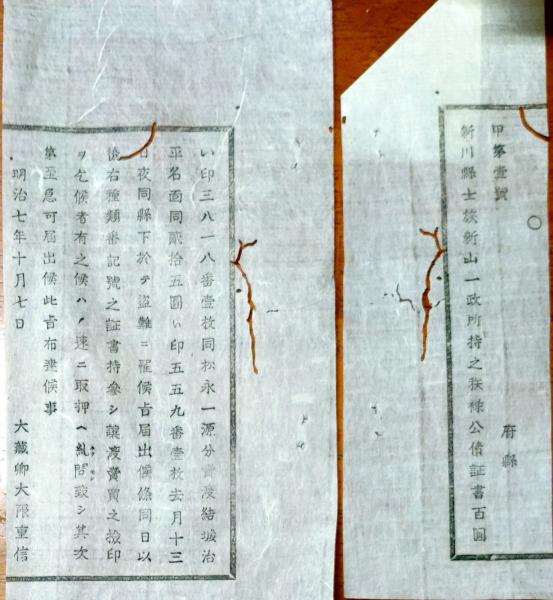 甲第壹號
府縣
新川縣士族新山一政所持之秩祿公債証書百圓
い印三八一八番壹枚同松永一源分賣渡結城治
平名面同貳拾五圓い印五五九番壹枚去月十三
日夜同縣下於テ盜難ニ罹候旨届出候條同日以
後右種類番記號之証書持參シ讓渡賣買之檢印
ヲ乞候者有之候ハヽ速ニ取押ヘ糺問致シ其次
第至急可届出候此旨布達候事
明治七年十月七日
大藏卿大隈重信